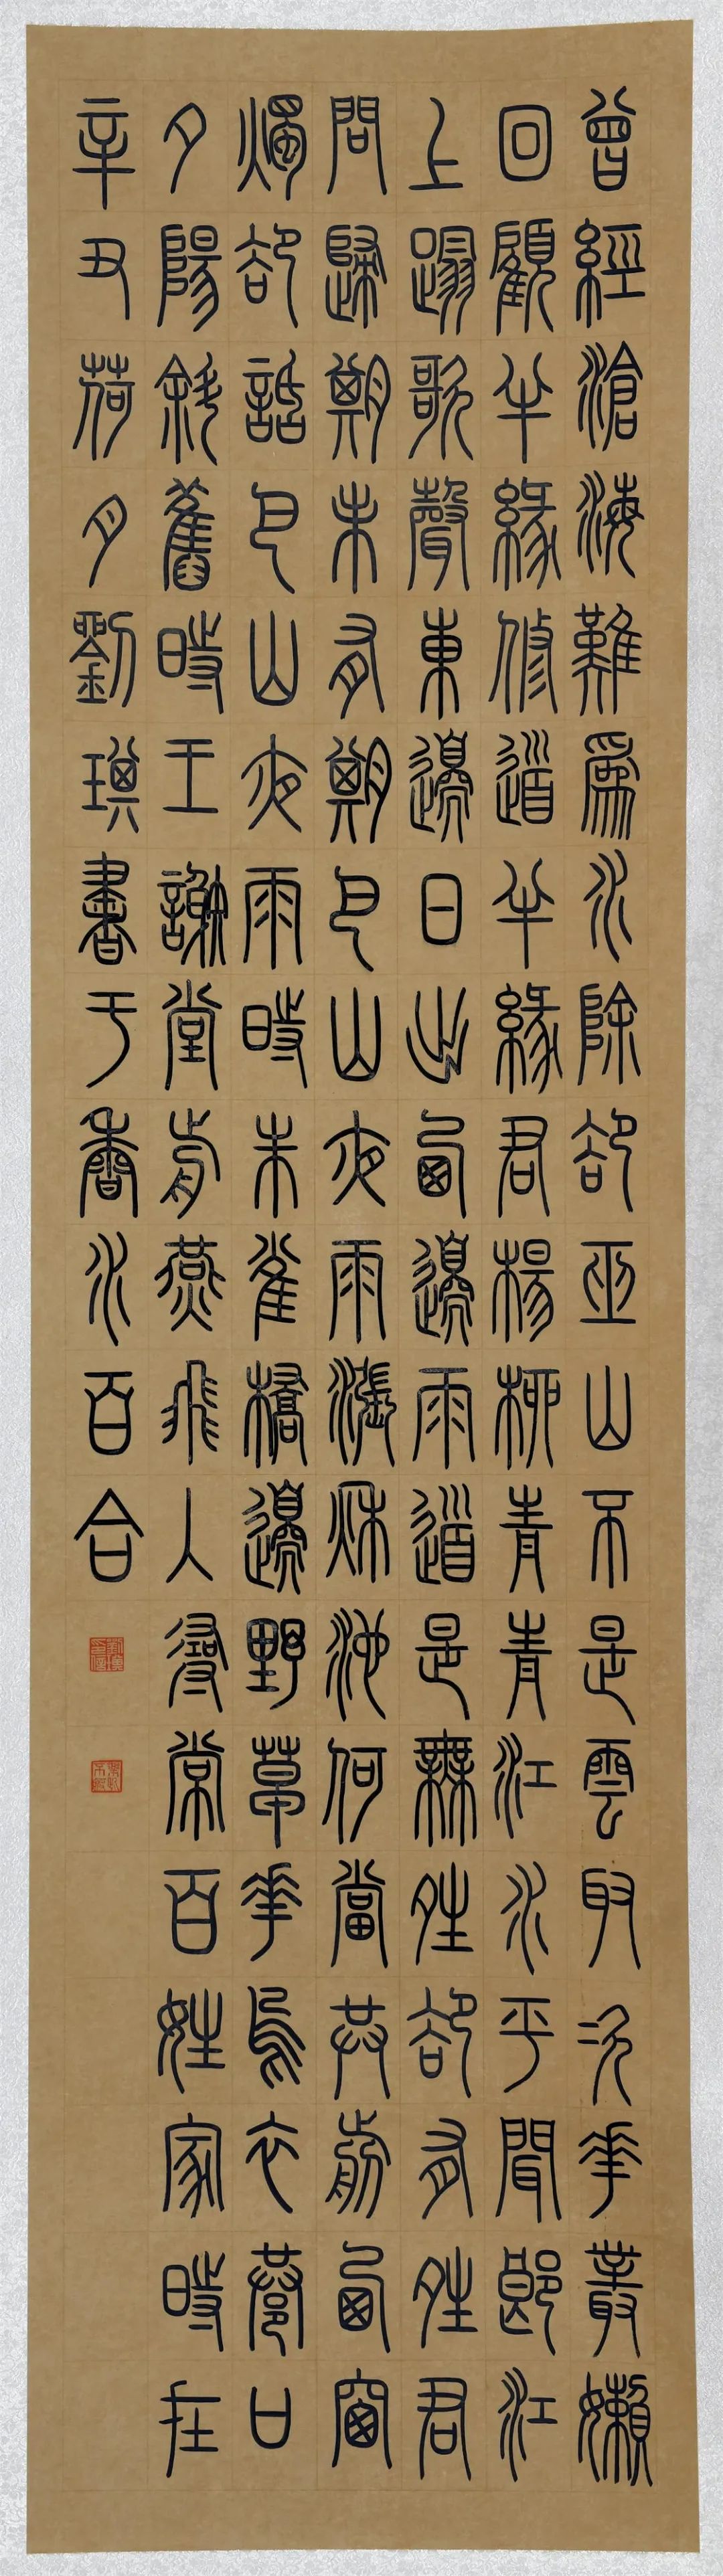 曾經滄海難為水除卻巫山不是雲取次花叢懶
回顧半緣修道半緣君楊柳青青江水平聞郎江
上蹋歌聲東邊日出西邊雨道是無晴卻有晴君
問歸期未有期巴山夜雨漲秋池何當共剪西窗
燭卻話巴山夜雨時朱雀橋邊野草花烏衣巷口
夕陽斜舊時王謝堂前燕飛入尋常百姓家時在
辛丑荷月劉琪書于香水百合